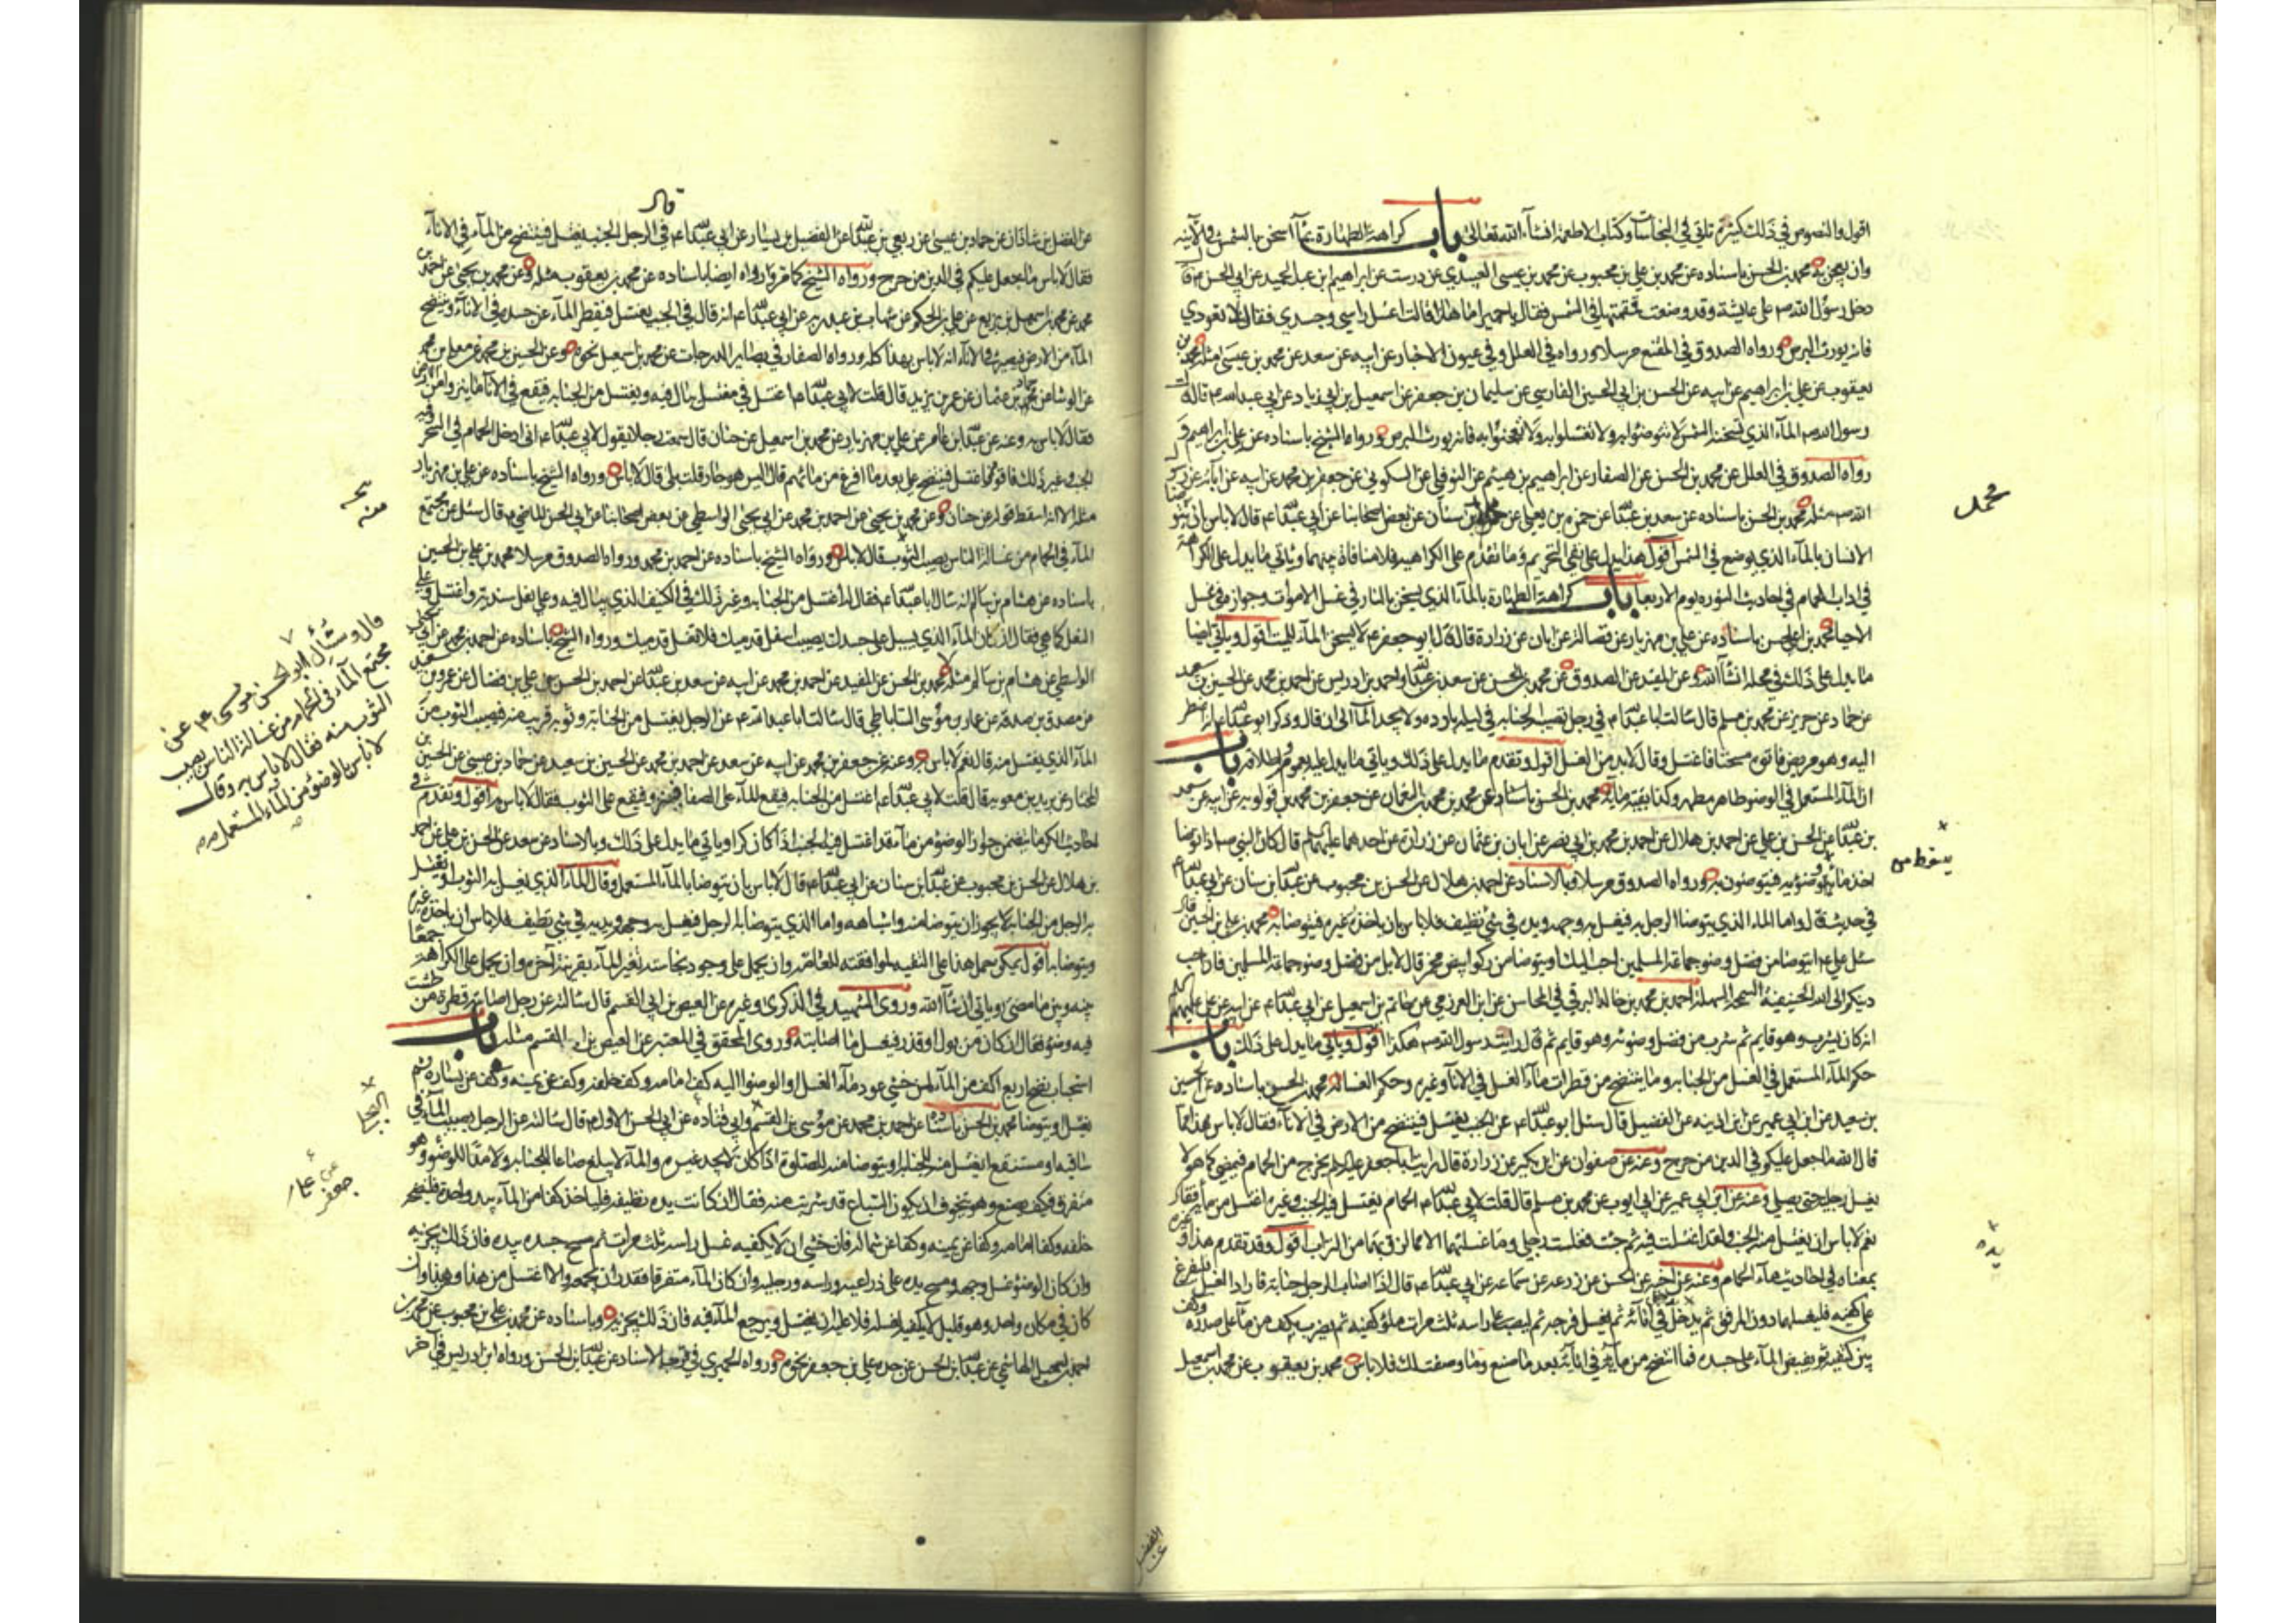 اقول والنصوص في ذلك كثيرة تاتي في النجاسات وكتاب الاطعمة انشاء الله تعالى باب كراهة الطهارة بماء اسخن بالشمس في الآنية
وان يعجن به محمد بن الحسن باسناده عن محمد بن علي بن محبوب عن محمد بن عيسى العبيدي عن درست عن ابراهيم بن عبد الحميد عن ابي الحسن ع قال
دخل رسول الله ص على عايشة وقد وضعت قمقمتها في الشمس فقال يا حميرا ما هذا قالت اغسل راسي وجسدي فقال لا تعودي
فانه يورث البرص ورواه الصدوق في المقنع مرسلا ورواه في العلل وفي عيون الاخبار عن ابيه عن سعد عن محمد بن عيسى مثله محمد بن
يعقوب عن علي بن ابراهيم عن ابيه عن الحسن بن ابي الحسين الفارسي عن سليمان بن جعفر عن اسمعيل بن ابي زياد عن ابي عبد الله ع قال قال
رسول الله ص الماء الذي تسخنه الشمس لا تتوضوا به ولا تغتسلوا به ولا تعجنوا به فانه يورث البرص ورواه الشيخ باسناده عن علي بن ابراهيم و
رواه الصدوق في العلل عن محمد بن الحسن عن الصفار عن ابراهيم بن هيثم عن النوفلي عن السكوني عن جعفر بن محمد عن ابيه عن آبائه عن
الله ص مثله محمد بن الحسن باسناده عن سعد بن عبد الله عن حمزة بن يعلى عن محمد بن سنان عن بعض اصحابنا عن ابي عبد الله ع قال لا باس ان يتوضا
الانسان بالماء الذي يوضع في الشمس اقول هذا يدل على نفي التحريم وما تقدم على الكراهية فلا منافاة بينهما وياتي ما يدل على الكراهة
في اداب الحمام في احاديث النورة يوم الاربعا باب كراهة الطهارة بالماء الذي يسخن بالنار في غسل الاموات وجوازه في غسل
الاحيا محمد بن الحسن باسناده عن علي بن مهزيار عن فضالة عن ابان عن زرارة قال قال ابو جعفر ع لا يسخن الماء للميت اقول وياتي ايضا
ما يدل على ذلك في محله انشاء الله وعن المفيد عن الصدوق عن محمد بن الحسن عن سعد بن عبد الله واحمد بن ادريس عن احمد بن محمد عن الحسين بن سعيد
عن حماد عن حريز عن محمد بن مسلم قال سالت ابا عبد الله ع في رجل تصيبه الجنابة في ليلة باردة ولا يجد الماء الى ان قال وذكر ابو عبد الله ع انه اضطر
اليه وهو مريض فاتوه مسخنا فاغتسل وقال لا بد من الغسل اقول وتقدم ما يدل على ذلك وياتي ما يدل عليه بعمومه واطلاقه باب
ان الماء المستعمل في الوضو طاهر مطهر وكذا بقية مائه محمد بن الحسن باسناده عن محمد بن محمد بن النعمان عن جعفر بن محمد بن قولويه عن ابيه عن سعد
بن عبد الله عن الحسن بن علي عن احمد بن هلال عن احمد بن محمد بن ابي نصر عن ابان بن عثمان عن زرارة عن احدهما عليهما السلام قال كان النبي ص اذا توضا
اخذ ما يسقط من وضوئه فيتوضون به ورواه الصدوق مرسلا وبالاسناد عن احمد بن هلال عن الحسن بن محبوب عن عبد الله بن سنان عن ابي عبد الله ع
في حديث قال واما الماء الذي يتوضا الرجل به فيغسل به وجهه ويده في شي نظيف فلا باس ان ياخذه غيره فيتوضا به محمد بن علي بن الحسين قال
سئل علي ع ايتوضا من فضل وضو جماعة المسلمين احب اليك او يتوضا من ركو ابيض مخمر قال لا بل من فضل وضو جماعة المسلمين فان احب
دينكم الى الله الحنيفية السمحة السهلة احمد بن محمد بن خالد البرقي في المحاسن عن ابن العرزمي عن حاتم بن اسمعيل عن ابي عبد الله ع عن ابيه عن علي عليهم السلام
انه كان يشرب وهو قايم ثم شرب من فضل وضوئه وهو قايم ثم قال رايت رسول الله ص هكذا اقول وياتي ما يدل على ذلك باب
حكم الماء المستعمل في الغسل من الجنابة وما ينتضح من قطرات ماء الغسل في الاناء وغيره وحكم الغسالة محمد بن الحسن باسناده عن الحسين
بن سعيد عن ابن ابي عمير عن ابن اذينه عن الفضيل قال سئل ابو عبد الله ع عن الجنب يغتسل فينتضح من الارض في الاناء فقال لا باس هذا مما
قال الله ما جعل عليكم في الدين من حرج وعنه عن صفوان عن ابن بكير عن زرارة قال رايت ابا جعفر عليه السلام يخرج من الحمام فيمضي كما هو لا
يغسل رجليه حتى يصلي وعنه عن ابن ابي عمير عن ابي ايوب عن محمد بن مسلم قال قلت لابي عبد الله ع الحمام يغتسل فيه الجنب وغيره اغتسل من مائه فقال
نعم لا باس ان يغتسل منه الجنب ولقد اغتسلت فيه ثم جئت فغسلت رجلي وما غسلتهما الا مما لزق بهما من التراب اقول وقد تقدم هذا و
بمعناه في احاديث ماء الحمام وعنه عن اخيه الحسن عن زرعه عن سماعه عن ابي عبد الله ع قال اذا اصاب الرجل جنابة فاراد الغسل فليفرغ
على كفيه فليغسلهما دون المرفق ثم يدخل يده في انائه ثم يغسل فرجه ثم ليصب على راسه ثلث مرات ملؤ كفيه ثم يضرب بكف من ماء على صدره وكف
بين كتفيه ثم يفيض الماء على جسده فما انتضح من مائه في انائه بعد ما صنع وما وصفت لك فلا باس محمد بن يعقوب عن محمد بن اسمعيل
محمد
يسقط من
يده
عن الفضل
قال
عن الفضل بن شاذان عن حماد بن عيسى عن ربعي بن عبد الله عن الفضيل بن يسار عن ابي عبد الله ع في الرجل الجنب يغتسل فينتضح من الماء في الاناء
فقال لا باس ما جعل عليكم في الدين من حرج ورواه الشيخ كما مر ورواه ايضا باسناده عن محمد بن يعقوب مثله وعن محمد بن يحيى عن احمد بن
محمد عن محمد بن اسمعيل بن بزيع عن علي بن الحكم عن شهاب بن عبد ربه عن ابي عبد الله ع انه قال في الجنب يغتسل فيقطر الماء عن جسده في الاناء وينتضح
الماء من الارض فيصير في الاناء انه لا باس بهذا كله ورواه الصفار في بصاير الدرجات عن محمد بن اسمعيل نحوه وعن الحسين بن محمد عن معلى بن محمد
عن الوشا عن حماد بن عثمان عن عمر بن يزيد قال قلت لابي عبد الله ع اغتسل في مغتسل يبال فيه ويغتسل من الجنابة فيقع في الاناء ما ينزو من الارض
فقال لا باس به وعنه عن عبد الله بن عامر عن علي بن مهزيار عن محمد بن اسمعيل عن حنان قال سمعت رجلا يقول لابي عبد الله ع اني ادخل الحمام في السحر وفيه
الجنب وغير ذلك فاقوم فاغتسل فينتضح علي بعد ما افرغ من مائهم قال اليس هو جار قلت بلى قال لا باس ورواه الشيخ باسناده عن علي بن مهزيار
مثله الا انه اسقط قوله عن حنان وعن محمد بن يحيى عن احمد بن محمد عن ابي يحيى الواسطي عن بعض اصحابنا عن ابي الحسن الماضي ع قال سئل عن مجتمع
الماء في الحمام من غسالة الناس يصيب الثوب قال لا باس ورواه الشيخ باسناده عن احمد بن محمد ورواه الصدوق مرسلا محمد بن علي بن الحسين
باسناده عن هشام بن سالم انه سال ابا عبد الله ع فقال له اغتسل من الجنابة وغير ذلك في الكنيف الذي يبال فيه وعلي نعل سندية واغتسل وعلي
النعل كما هي فقال ان كان الماء الذي يسيل على جسدك يصيب اسفل قدميك فلا تغسل قدميك ورواه الشيخ باسناده عن احمد بن محمد عن ابي يحيى
الواسطي عن هشام بن سالم مثله محمد بن الحسن عن المفيد عن احمد بن محمد عن ابيه عن سعد بن عبد الله عن احمد بن الحسن بن علي بن فضال عن عمرو بن سعيد
عن مصدق بن صدقة عن عمار بن موسى الساباطي قال سالت ابا عبد الله ع عن الرجل يغتسل من الجنابة وثوبه قريب منه فيصيب الثوب من
الماء الذي يغتسل منه قال نعم لا باس به وعنه عن جعفر بن محمد عن ابيه عن سعد عن احمد بن محمد عن الحسين بن سعيد عن حماد بن عيسى عن الحسين بن
المختار عن بريد بن معويه قال قلت لابي عبد الله ع اغتسل من الجنابة فيقع الماء على الصفا فينزو فيقع على الثوب فقال لا باس به اقول وتقدم في
احاديث الكر ما تضمن جواز الوضوء من ماء قد اغتسل فيه الجنب اذا كان كرا وياتي ما يدل على ذلك وبالاسناد عن سعد عن الحسن بن علي عن احمد
بن هلال عن الحسن بن محبوب عن عبد الله بن سنان عن ابي عبد الله ع قال لا باس بان يتوضا بالماء المستعمل وقال الماء الذي يغسل به الثوب او يغتسل
به الرجل من الجنابة لا يجوز ان يتوضا منه واشباهه واما الذي يتوضا به الرجل فيغسل به وجهه ويده في شي نظيف فلا باس ان ياخذه غيره
ويتوضا به اقول يمكن حمل هذا على التقية لموافقته للعامة وان يحمل على وجود نجاسة تغير الماء بقرينة آخره وان يحمل على الكراهة جمعا
بينه وبين ما مضى وياتي انشاء الله وروى الشهيد في الذكرى وغيره عن العيص بن ابي القسم قال سالته عن رجل اصابته قطرة من طشت
فيه وضوء فقال ان كان من بول او قذر فيغسل ما اصابه وروى المحقق في المعتبر عن العيص بن القسم مثله باب
استحباب نضح اربع اكف من الماء لمن خشي عود ماء الغسل او الوضوا اليه كف امامه وكف خلفه وكف عن يمينه وكف عن يساره ثم
يغتسل ويتوضا محمد بن الحسن باسناده عن احمد بن محمد عن موسى بن القسم وابي قتاده عن ابي الحسن الاول ع قال سالته عن الرجل يصيب الماء في
ساقيه او مستنقع ايغتسل منه للجنابة او يتوضا منه للصلوة اذا كان لا يجد غيره والماء لا يبلغ صاعا للجنابة ولا مدا للوضوء وهو
متفرق فكيف يصنع وهو يتخوف ان يكون السباع قد شربت منه فقال ان كانت يده نظيفة فلياخذ كفا من الماء بيد واحدة فلينضحه
خلفه وكفا امامه وكفا عن يمينه وكفا عن شماله فان خشي ان لا يكفيه غسل راسه ثلث مرات ثم مسح جلده بيده فان ذلك يجزيه
وان كان الوضوء غسل وجهه ومسح يده على ذراعيه وراسه ورجليه وان كان الماء متفرقا فقدر ان يجمعه والا اغتسل من هذا وهذا وان
كان في مكان واحد وهو قليل لا يكفيه لغسله فلا عليه ان يغتسل ويرجع الماء فيه فان ذلك يجزيه وباسناده عن محمد بن علي بن محبوب عن محمد بن
احمد بن اسمعيل الهاشمي عن عبد الله بن الحسن عن جده علي بن جعفر نحوه ورواه الحميري في قرب الاسناد عن عبد الله بن الحسن ورواه ابن ادريس في آخر
قال وسئل ابو الحسن موسى ع عن
مجتمع الماء في الحمام من غسالة الناس يصيب
الثوب منه فقال لا باس به وقال
لا باس بالوضوء من الماء المستعمل